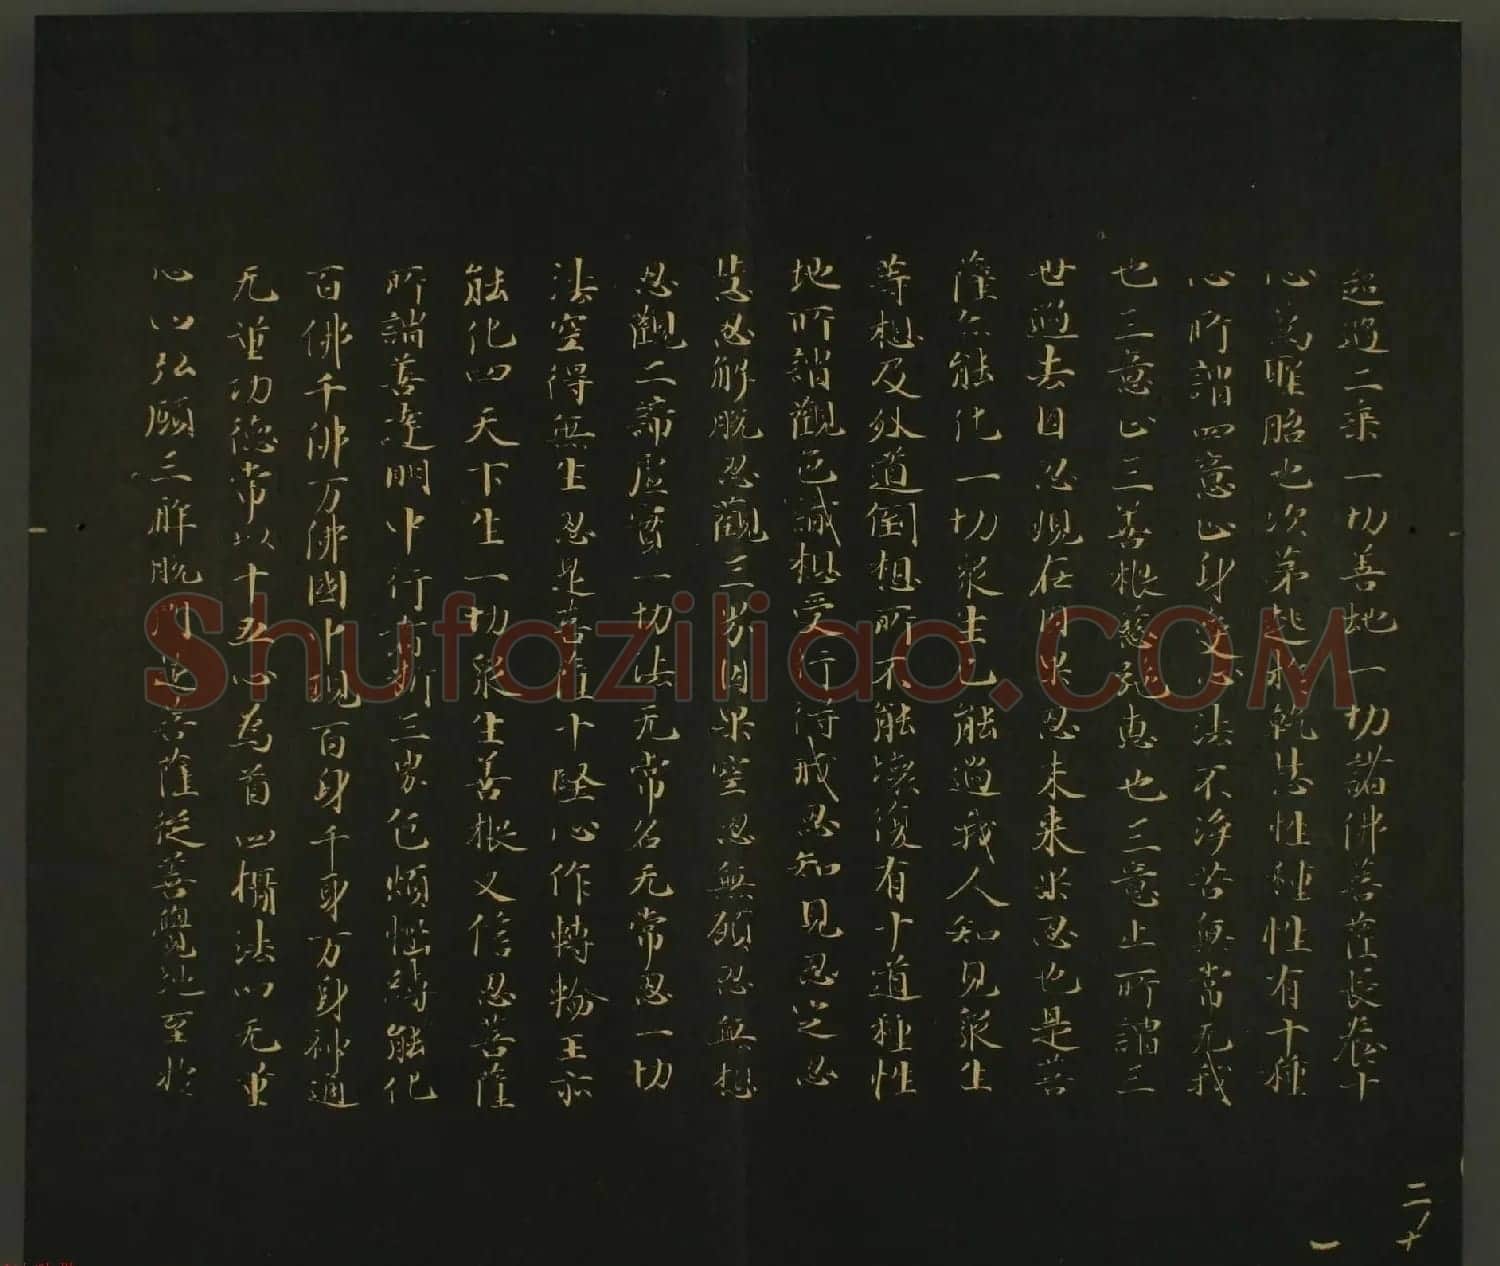 超過二乘一切善地一切諸佛菩薩長養十
心為聖胎也次第起於乾慧性種性有十種
心所謂四意止身受心法不淨苦無常无我
也三意止三善根慈施惠也三意止所謂三
世過去因忍現在因果忍未來果忍也是菩
薩亦能化一切眾生已能過我人知見眾生
等想及外道倒想所不能壞復有十道種性
地所謂觀色識想受行得戒忍知見忍定忍
慧忍解脫忍觀三界因果空忍無願忍無想
忍觀二諦虛實一切法无常名无常忍一切
法空得無生忍是菩薩十堅心作轉輪王亦
能化四天下生一切眾生善根又信忍菩薩
所謂善達明中行者斷三界色煩惱縛能化
百佛千佛万佛國中現百身千身万身神通
无量功德常以十五心為首四攝法四无量
心四弘願三解脫門是菩薩從善覺地至於
二ノ十
一
Shufaziliao.COM